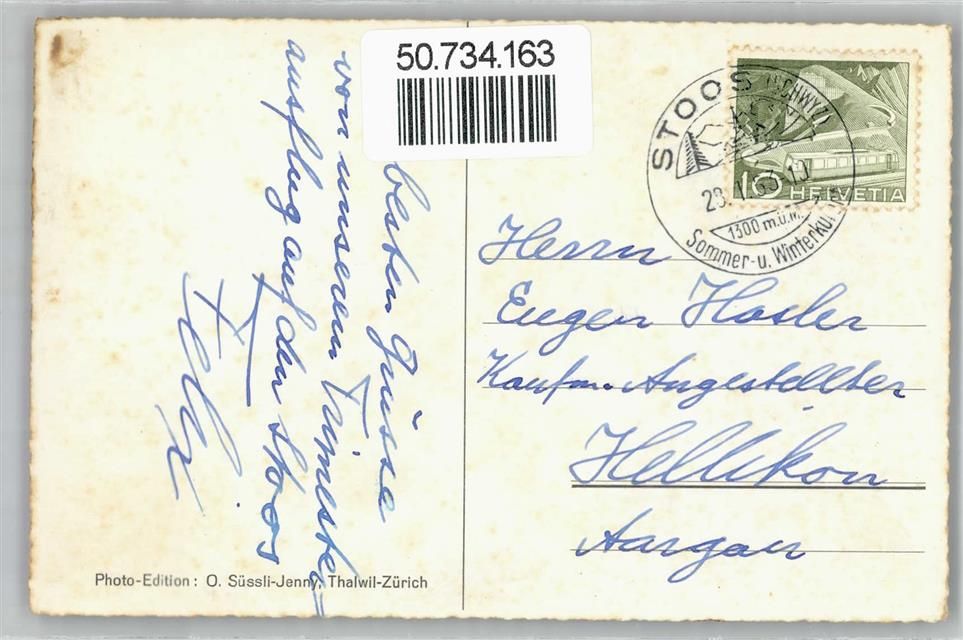 50.734.163
besten Grüsse
von unserem Trimester=
ausflug auf den Stoos
Felix
STOOS (SCHWYZ)
1300 m.ü.M.
Sommer- u. Winterkurort
10
HELVETIA
Herrn
Eugen Hasler
Kaufm. Angestellter
Hellikon
Aargau
Photo-Edition: O. Süssli-Jenny, Thalwil-Zürich